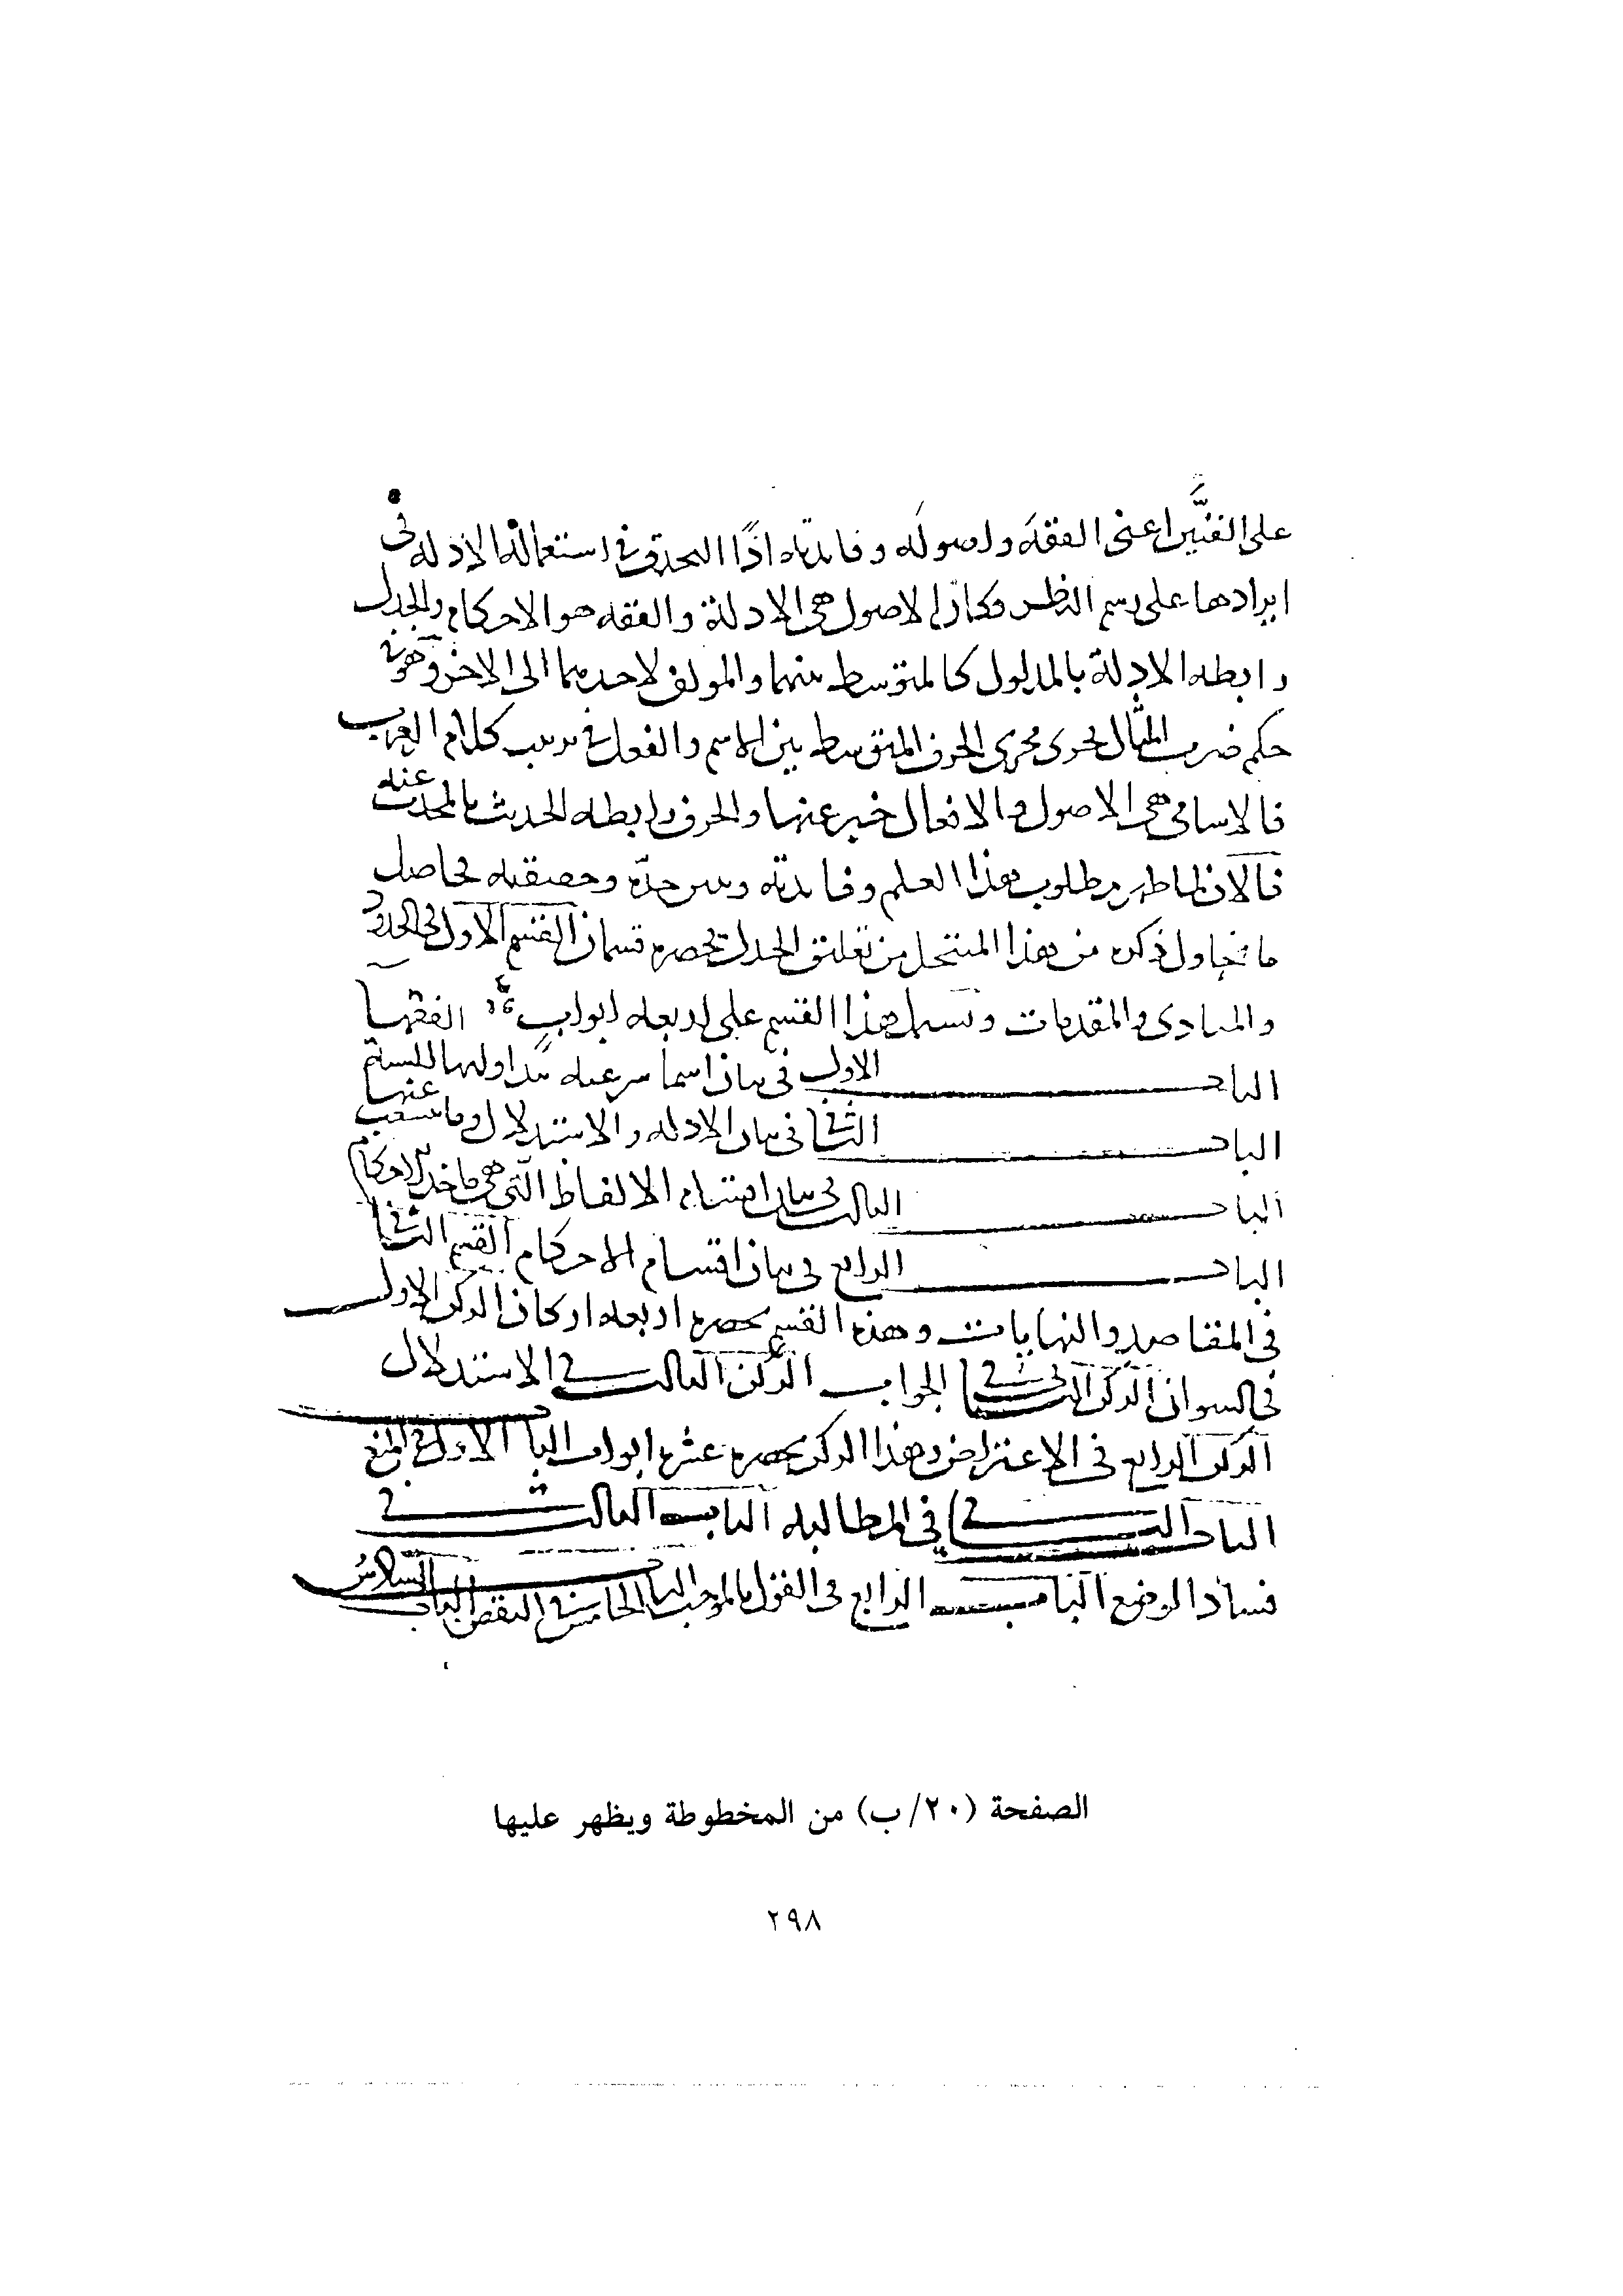 على الفنين اعنى الفقه واصوله وفايدته اذا التحذق في استعمال الادلة في
ايرادها على رسم النظر فكان الاصول هي الادلة والفقه هو الاحكام والجدل
رابطه الادلة بالمدلول كالمتوسط بينهما والمولف لاحدهما الى الاخر وهو في
حكم ضرب المثال يجرى مجرى الحرف المتوسط بين الاسم والفعل في كلام العرب
فالاسامى هى الاصول والافعال خبر عنها والحرف رابطه الحدث بالمحدث عنه
فالان ظهر مطلوب هذا العلم وفايدته وسر حده وحقيقته فحاصل
ما نحاول ذكره من هذا المنتحل من تعليق الجدل يحصره قسمان القسم الاول في الحدود
والمبادى والمقدمات وتشتمل هذا القسم على اربعه ابواب الفقها
الباب الاول في بيان اسما شرعيه تداولها السنة
الباب الثاني في بيان الادله والاستدلال وما يتشعب عنها
الباب الثالث في بيان اقسام الالفاظ التي هي ماخذ الاحكام
الباب الرابع في بيان اقسام الاحكام القسم الثاني
في المقاصد والنهايات وهذا القسم يحصره اربعه اركان الركن الاول
في السوال الركن الثاني في الجواب الركن الثالث في الاستدلال
الركن الرابع في الاعتراض وهذا الركن يحصره عشره ابواب الباب الاول في المنع
الباب الثاني في المطالبه الباب الثالث في
فساد الوضع الباب الرابع في القول بالموجب الباب الخامس في النقض الباب السادس
الصفحة (٢٠/ب) من المخطوطة ويظهر عليها
٢٩٨